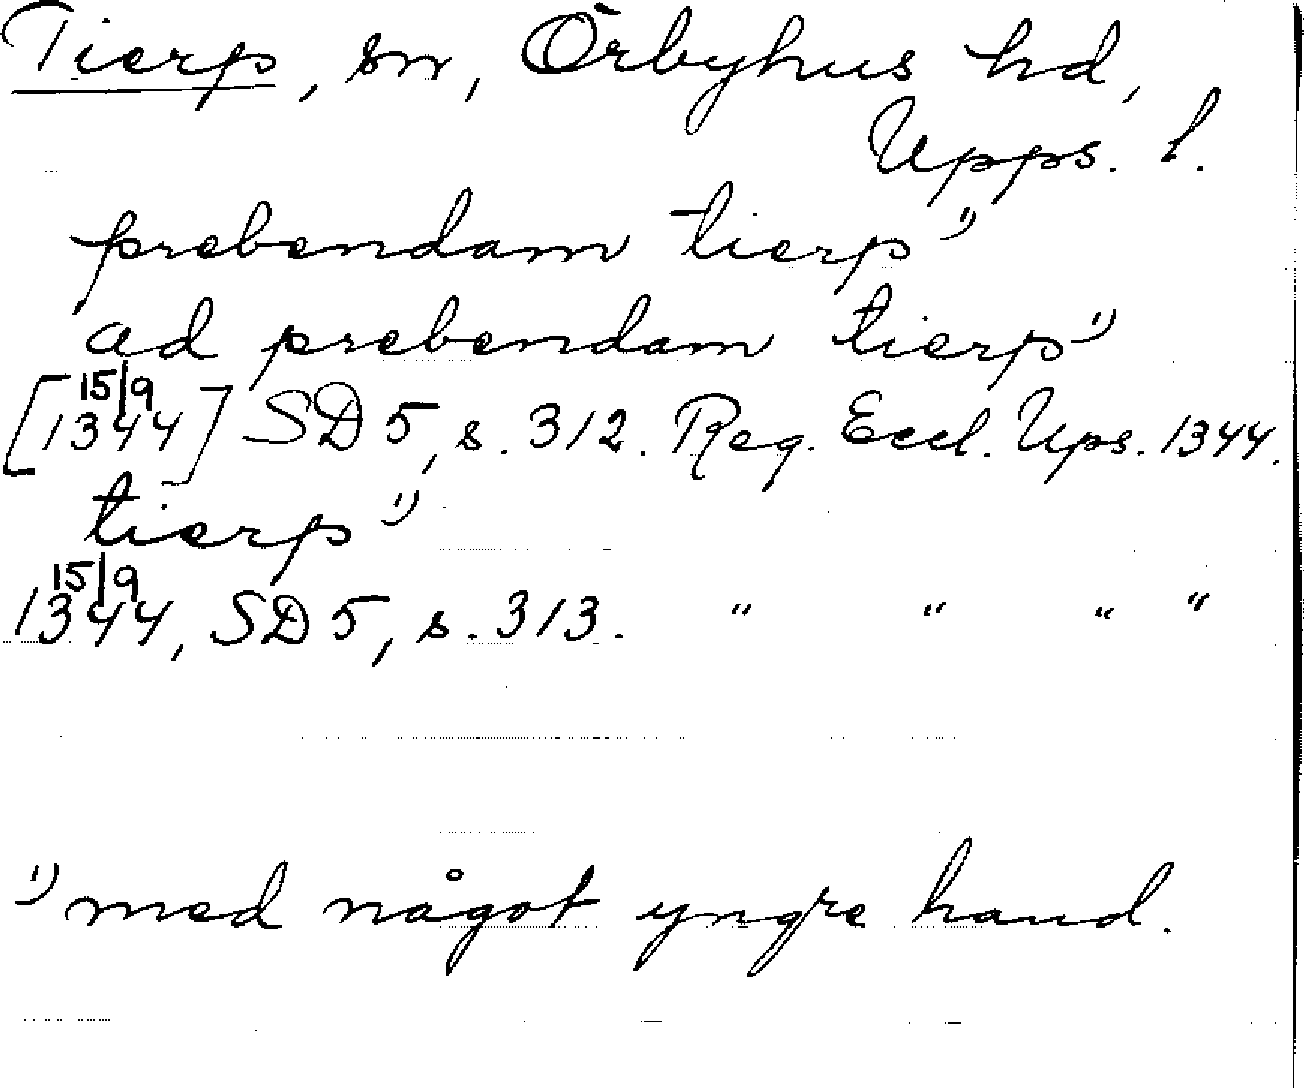 Tierp, sn, Örbyhus hd,
Upps. l.
prebendam tierp¹⁾
ad prebendam tierp¹⁾
15/9
[1344] SD 5, s. 312. Reg. Eccl. Ups. 1344.
tierp¹⁾
15/9
1344, SD 5, s. 313. " " " "
¹⁾ med något yngre hand.